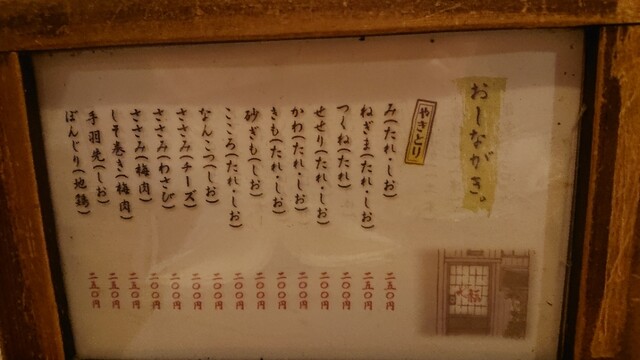 おしながき。
やきとり
み(たれ・しお) 二五〇円
ねぎま(たれ・しお) 二五〇円
つくね(たれ) 二〇〇円
せせり(たれ・しお) 二〇〇円
かわ(たれ・しお) 二〇〇円
きも(たれ・しお) 二〇〇円
砂ぎも(しお) 二〇〇円
こころ(たれ・しお) 二〇〇円
なんこつ(しお) 二〇〇円
ささみ(チーズ) 二〇〇円
ささみ(わさび) 二〇〇円
ささみ(梅肉) 二〇〇円
しそ巻き(梅肉) 二五〇円
手羽先(しお) 二五〇円
ぼんじり(地鶏) 二五〇円